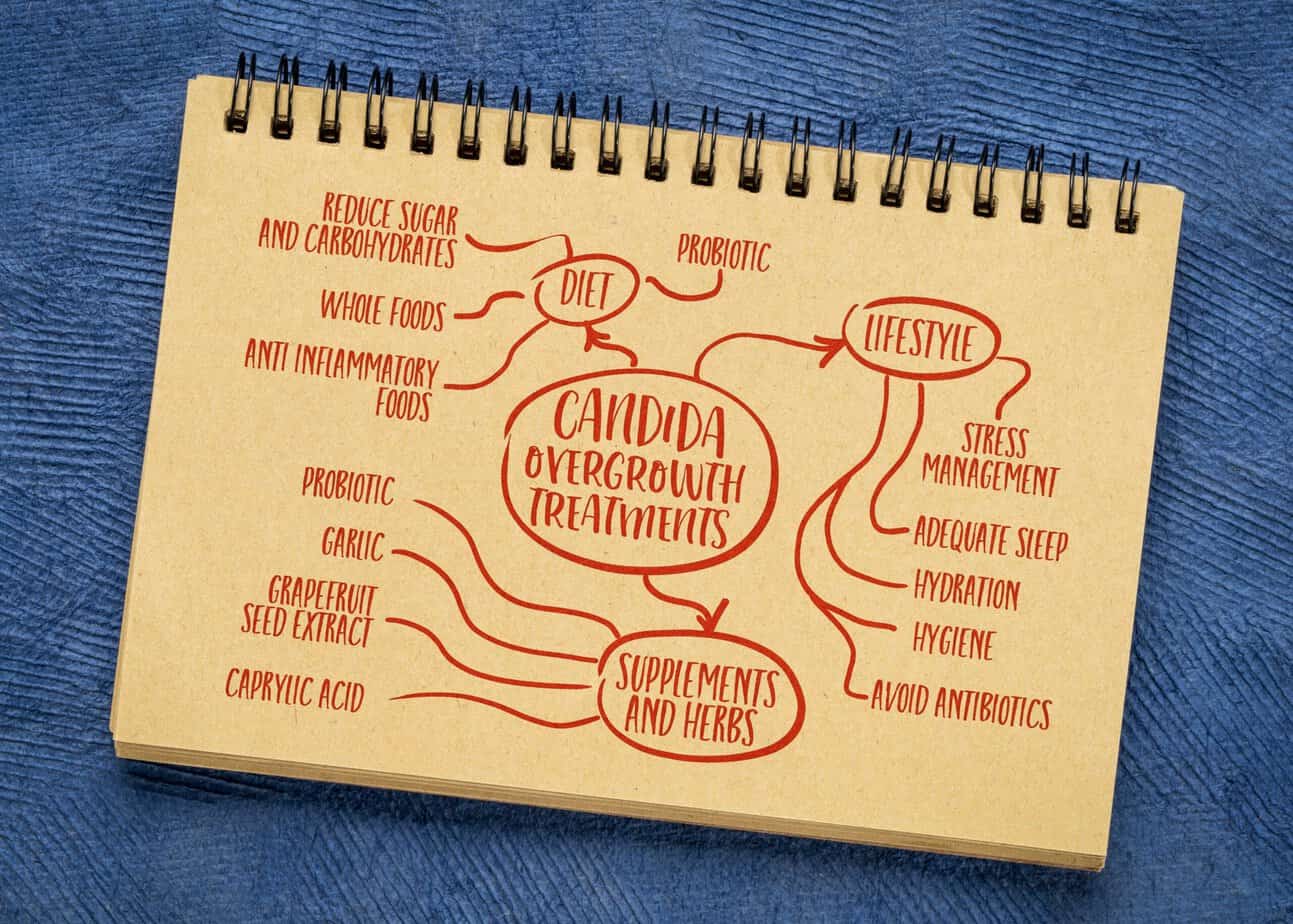 REDUCE SUGAR
AND CARBOHYDRATES
WHOLE FOODS
ANTI INFLAMMATORY
FOODS
DIET
PROBIOTIC
LIFESTYLE
STRESS
MANAGEMENT
ADEQUATE SLEEP
HYDRATION
HYGIENE
AVOID ANTIBIOTICS
CANDIDA
OVERGROWTH
TREATMENTS
PROBIOTIC
GARLIC
GRAPEFRUIT
SEED EXTRACT
CAPRYLIC ACID
SUPPLEMENTS
AND HERBS